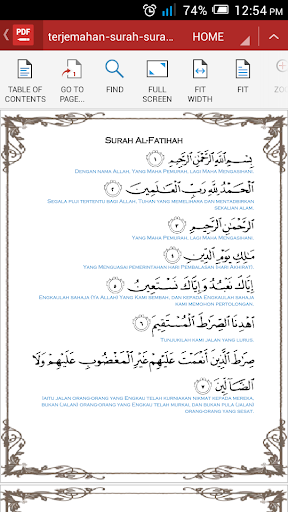 74% 12:54 PM
PDF terjemahan-surah-sura... HOME
TABLE OF CONTENTS
GO TO PAGE...
FIND
FULL SCREEN
FIT WIDTH
FIT
ZOO
SURAH AL-FATIHAH
بِسْمِ اللَّهِ الرَّحْمَٰنِ الرَّحِيمِ ١
DENGAN NAMA ALLAH, YANG MAHA PEMURAH, LAGI MAHA MENGASIHANI.
الْحَمْدُ لِلَّهِ رَبِّ الْعَالَمِينَ ٢
SEGALA PUJI TERTENTU BAGI ALLAH, TUHAN YANG MEMELIHARA DAN MENTADBIRKAN
SEKALIAN ALAM.
الرَّحْمَٰنِ الرَّحِيمِ ٣
YANG MAHA PEMURAH, LAGI MAHA MENGASIHANI.
مَالِكِ يَوْمِ الدِّينِ ٤
YANG MENGUASAI PEMERINTAHAN HARI PEMBALASAN (HARI AKHIRAT).
إِيَّاكَ نَعْبُدُ وَإِيَّاكَ نَسْتَعِينُ ٥
ENGKAULAH SAHAJA (YA ALLAH) YANG KAMI SEMBAH, DAN KEPADA ENGKAULAH SAHAJA
KAMI MEMOHON PERTOLONGAN.
اهْدِنَا الصِّرَاطَ الْمُسْتَقِيمَ ٦
TUNJUKILAH KAMI JALAN YANG LURUS.
صِرَاطَ الَّذِينَ أَنْعَمْتَ عَلَيْهِمْ غَيْرِ الْمَغْضُوبِ عَلَيْهِمْ وَلَا
الضَّالِّينَ
IAITU JALAN ORANG-ORANG YANG ENGKAU TELAH KURNIAKAN NIKMAT KEPADA MEREKA,
BUKAN (JALAN) ORANG-ORANG YANG ENGKAU TELAH MURKAI DAN BUKAN PULA (JALAN)
ORANG-ORANG YANG SESAT.